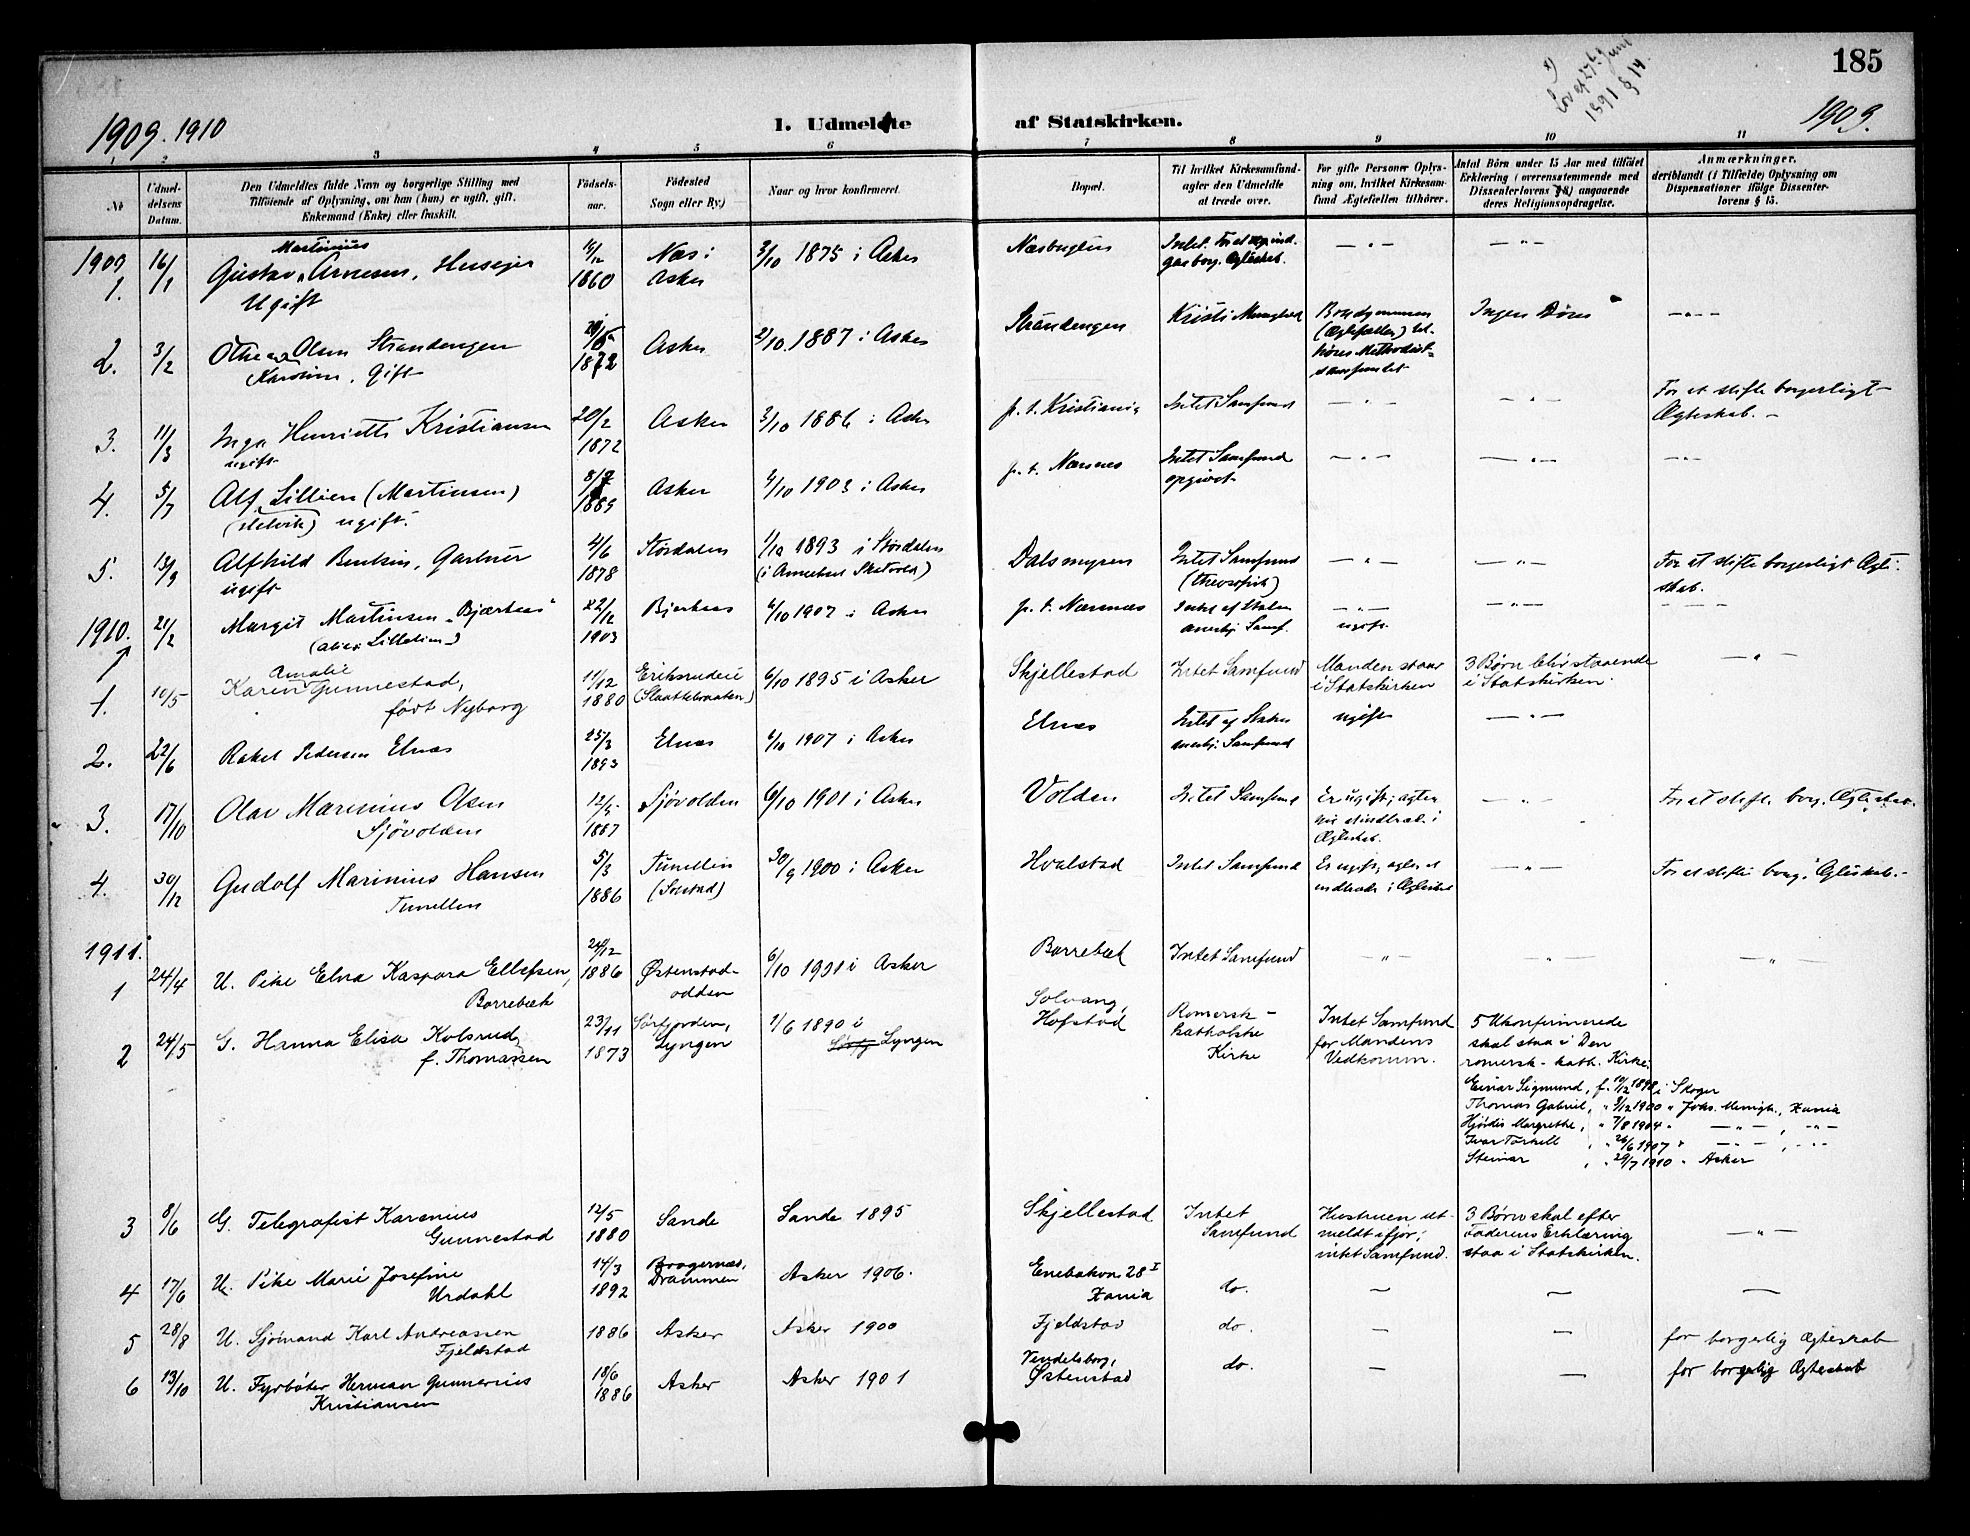 185
1909. 1910
1. Udmeldte af Statskirken.
1909.
Lov af 27de Juni
1891 § 14.
1 2 3 4 5 6 7 8 9 10 11
No
Udmel-
delsens
Datum.
Den Udmeldtes fulde Navn og borgerlige Stilling med
Tilföiende af Oplysning, om han (hun) er ugift, gift,
Enkemand (Enke) eller fraskilt.
Födsels-
aar.
Födested
Sogn eller By.)
Naar og hvor konfirmeret.
Bopæl.
Til hvilket Kirkesamfund
agter den Udmeldte
at træde over.
For gifte Personer Oplys-
ning om, hvilket Kirkesam-
fund Ægtefællen tilhörer.
Antal Börn under 15 Aar med tilföiet
Erklæring (overensstemmende med
Dissenterlovens § 8) angaaende
deres Religionsopdragelse.
Anmærkninger,
deriblandt (i Tilfælde) Oplysning om
Dispensationer ifölge Dissenter-
lovens § 15.
1909
1. 16/1
Martinius
Gustav Arnesen, Huseier
Ugift
/12
1860
Næs i
Asker
3/10 1875 i Asker
Næsbugten
Intet.
borg. Ægteskab.
— " —
— " —
2. 3/2
Othea Olsen Strandengen
Karoline, Gift
1872
Asker
2/10 1887 i Asker
Strandengen
Kristi Menighed
(Ægtefællen) til-
hører Methodist-
samfundet
Ingen Børn
— " —
3. 11/3
Inga Henriette Kristiansen
ugift
20/2
1872
Asker
3/10 1886 i Asker
p. t. Kristiania
Intet Samfund
— " —
— " —
For et stifte borgerligt
Ægteskab. —
4. 5/7
Alf Lillien (Martinsen)
(Slelvik) ugift.
1889
Asker
4/10 1903 i Asker
p. t. Næsnes
Intet Samfund
opgivet
— " —
— " —
— " —
5. 13/9
Alfhild Bentzin, Gartner
ugift
4/6
1878
Størdalen
1/10 1893 i Størdalen
(i Annekset Skatvold)
Dalsmyren
Intet Samfund
(theosofisk)
— " —
— " —
For at stifte borgerligt Ægte-
skab.
1910. 21/2
Margit Martinsen „Bjærkaas"
(alias Lillelien)
22/12
1903
Bjerkaas
6/10 1907 i Asker
p. t. Næsnes
Intet af Staten
anerkj. Samf.
— " —
ugift.
— " —
— — —
1. 10/5
Amalie
Karen Gunnestad,
født Nyborg
11/12
1880
Eriksrudeie
(Slaattebraaten)
6/10 1895 i Asker
Skjellestad
Intet Samfund
Manden staar
i Statskirken
3 Børn blir staaende
i Statskirken.
— " —
2. 22/6
Rakel Pedersen Elnæs
25/3
1893
Elnæs
6/10 1907 i Asker
Elnæs
Intet af Staten
anerkj. Samfund
ugift
— " —
3. 17/10
Olav Marinius Olsen
Sjøvolden
12/5
1887
Sjøvolden
6/10 1901 i Asker
Volden
Intet Samfund
Er ugift; agter
at indtræde i
Ægteskab.
— " —
For at stifte borg. Ægteskab.
4. 30/12
Gudolf Marinius Hansen
Tunellen
5/3
1886
Tunellen
(Solstad)
30/9 1900 i Asker
Hvalstad
Intet Samfund
Er ugift, agter at
indtræde i Ægteskab
— " —
For at stifte borg. Ægteskab. —
1911.
1 24/4
U. Pike Elna Kaspara Ellefsen,
Borrebæk
24/12
1886
Østenstad-
odden
6/10 1901 i Asker
Borrebæk
Intet Samfund
— " —
— " —
— " —
2 24/5
G. Hanna Elisa Kolsrud,
f. Thomassen
23/11
1873
Sørfjorden,
Lyngen
1/6 1890 i
Sørfj Lyngen
Solvang,
Hofstad
Romersk-
katholske
Kirke
Intet Samfund
for Mandens
Vedkomm.
5 Ukonfirmerede
skal staa i Den
romersk-kath. Kirke:
Einar Sigmund, f. 10/12 1898 i Skoger
Thomas Gabriel, " 9/12 1900 " Joh. Menigh., Xania
Hjördis Margrethe, " 7/8 1904 " — " — , — " —
Ivar Torkell, " 26/6 1907 " — " — , — " —
Steinar, " 29/7 1910 " Asker
3 8/6
G. Telegrafist Karenius
Gunnestad
12/5
1880
Sande
Sande 1895
Skjellestad
Intet
Samfund
Hustruen ut-
meldt ifjor;
intet Samfund.
3 Børn skal efter
Faderens Erklæring
staa i Statskirken.
— " —
4 17/6
U. Pike Marie Josefine
Urdahl
14/3
1892
Bragernæs,
Drammen
Asker 1906.
Enebakvn 28 I
Xania
do.
—
—
—
5 28/8
U. Sjömand Karl Andreassen
Fjeldstad
1886
Asker
Asker 1900
Fjeldstad
do.
—
—
for borgerlig Ægteskab
6 13/10
U. Fyrböter Herman Gunnerius
Kristiansen
18/6
1886
Asker
Asker 1901
Vendelsborg,
Østenstad
do.
—
—
for borgerlig Ægteskab